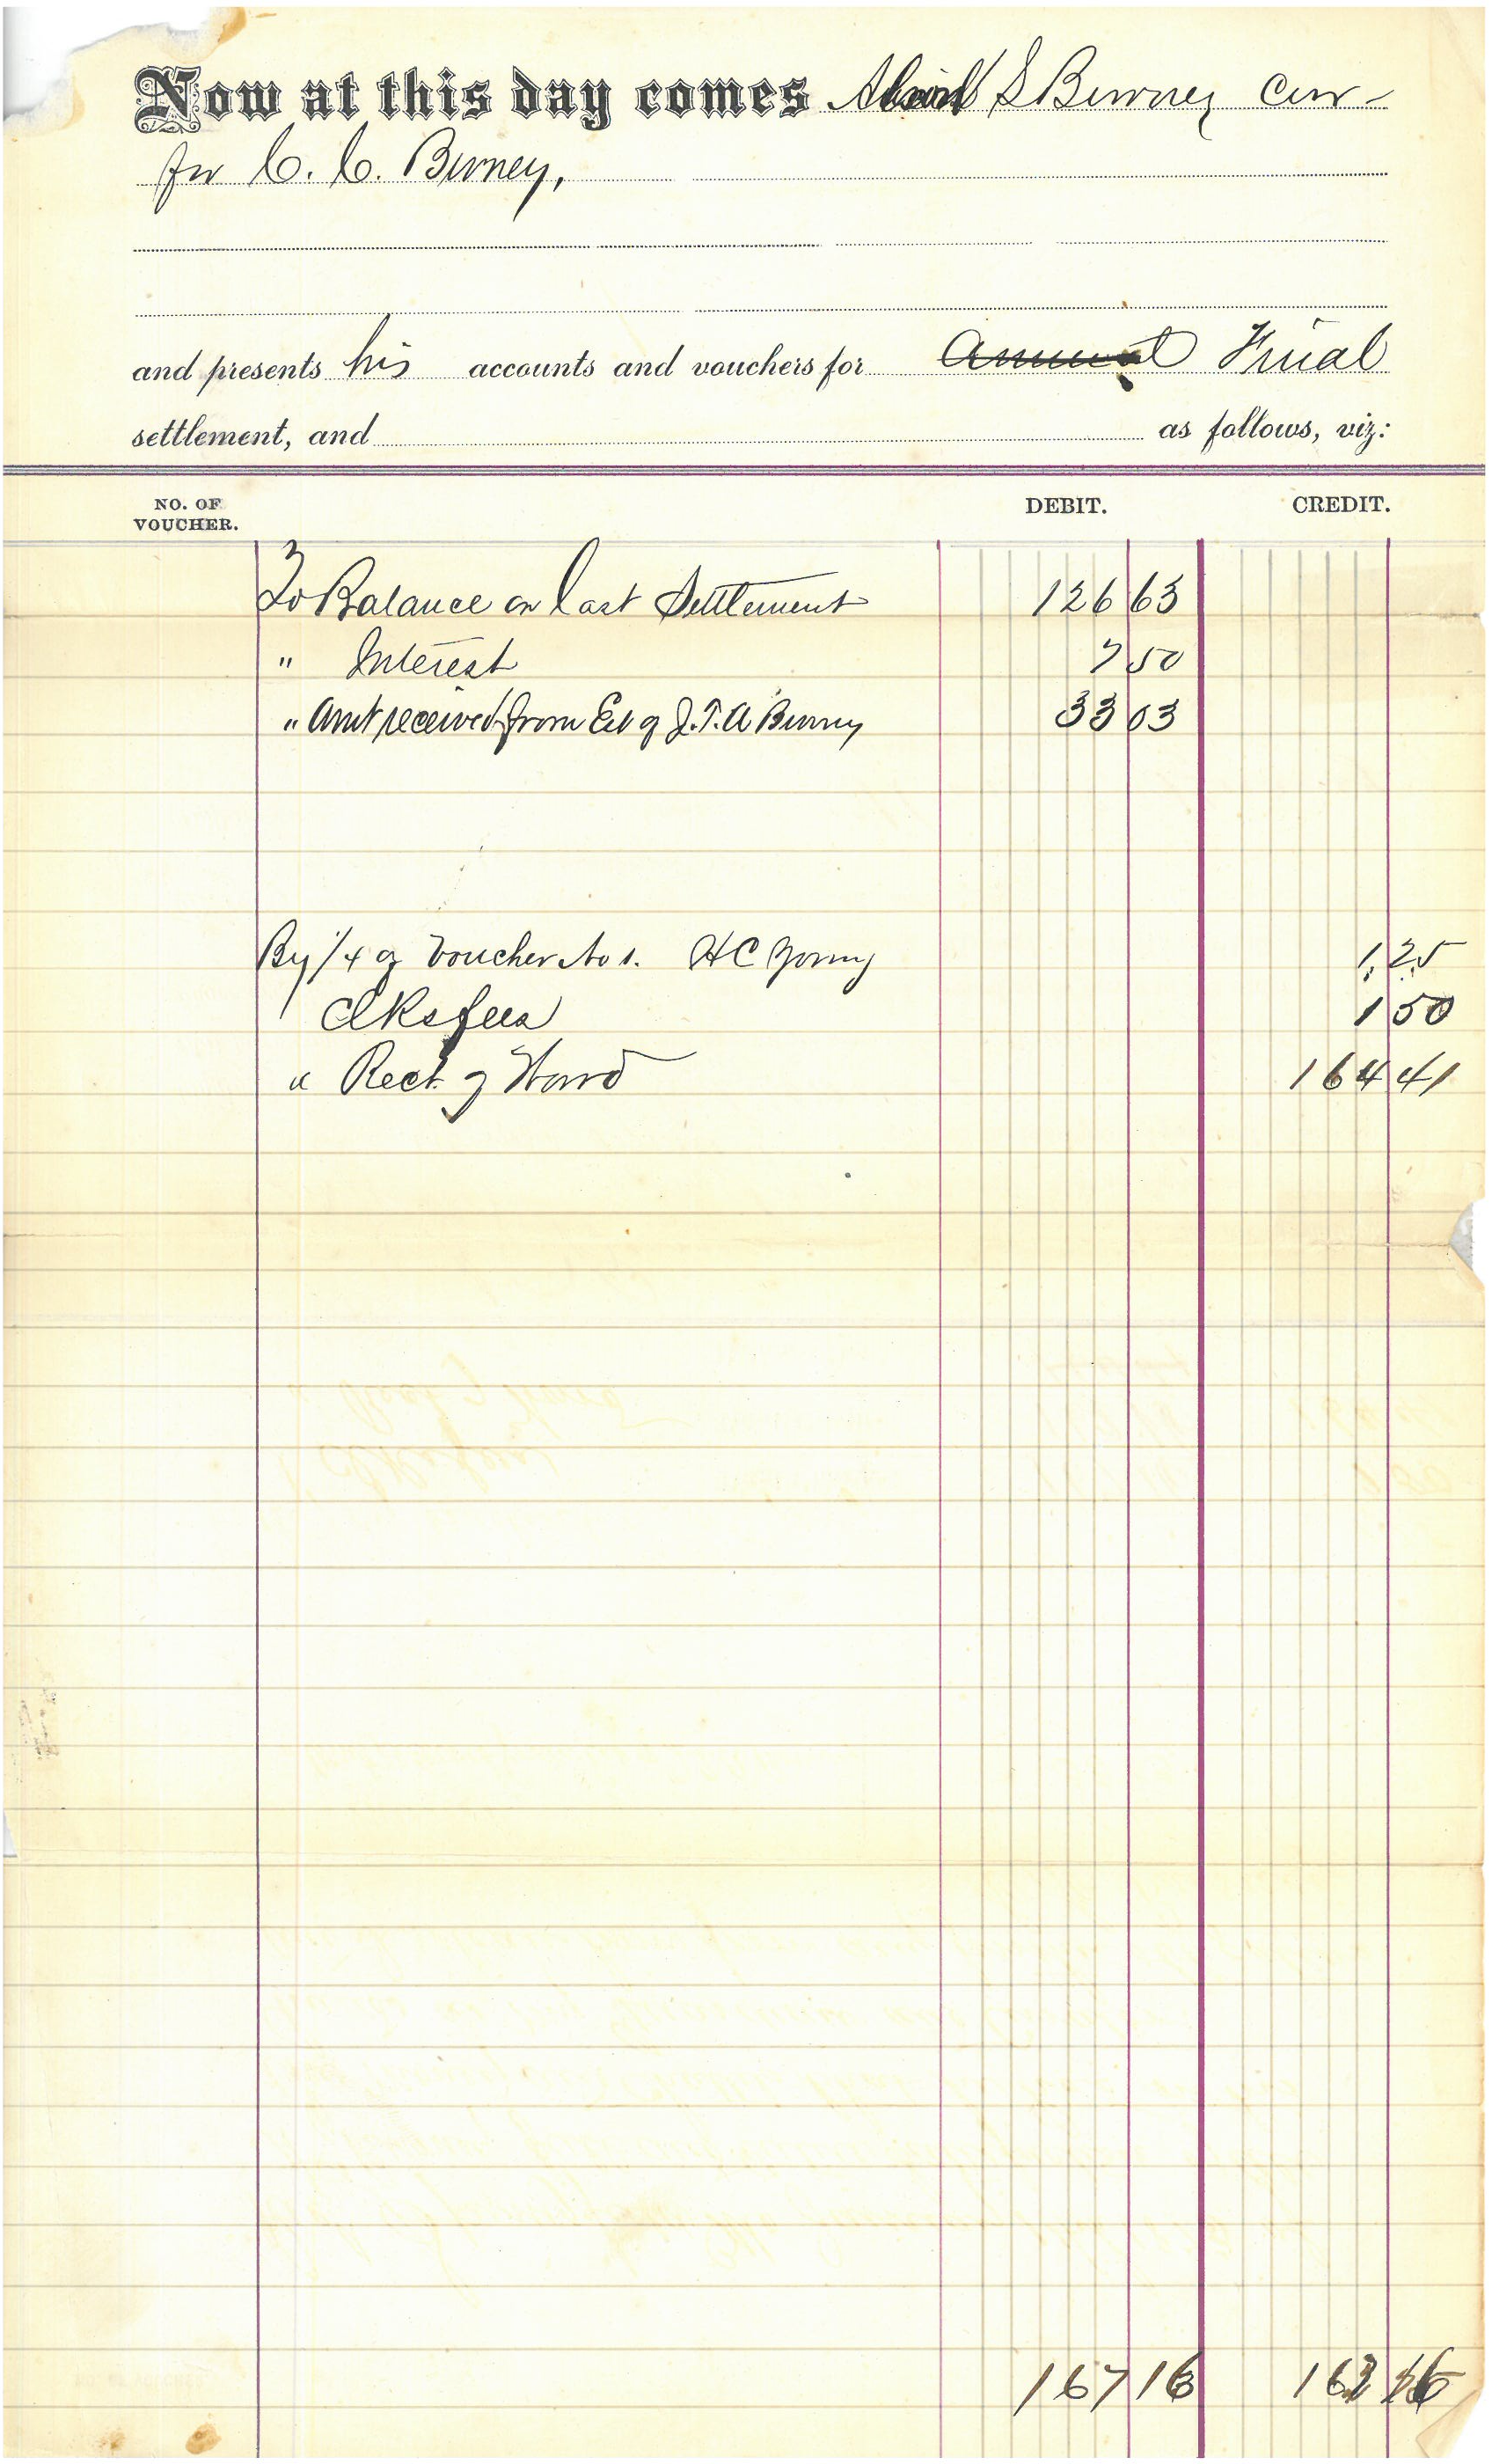 Now at this day comes S Birney Cur-
for C. C. Birney,
and presents his accounts and vouchers for Annual Final
settlement, and as follows, viz:
NO. OF VOUCHER. DEBIT. CREDIT.
To Balance on last Settlement 126 63
" Interest 7 50
" Amt received from Est of J. T. A Birney 33 03
By 1/4 of Voucher No 1. H C Young 1.25
" Clks fees 1 50
" Rect. of Ward 164 41
167 16 167 16